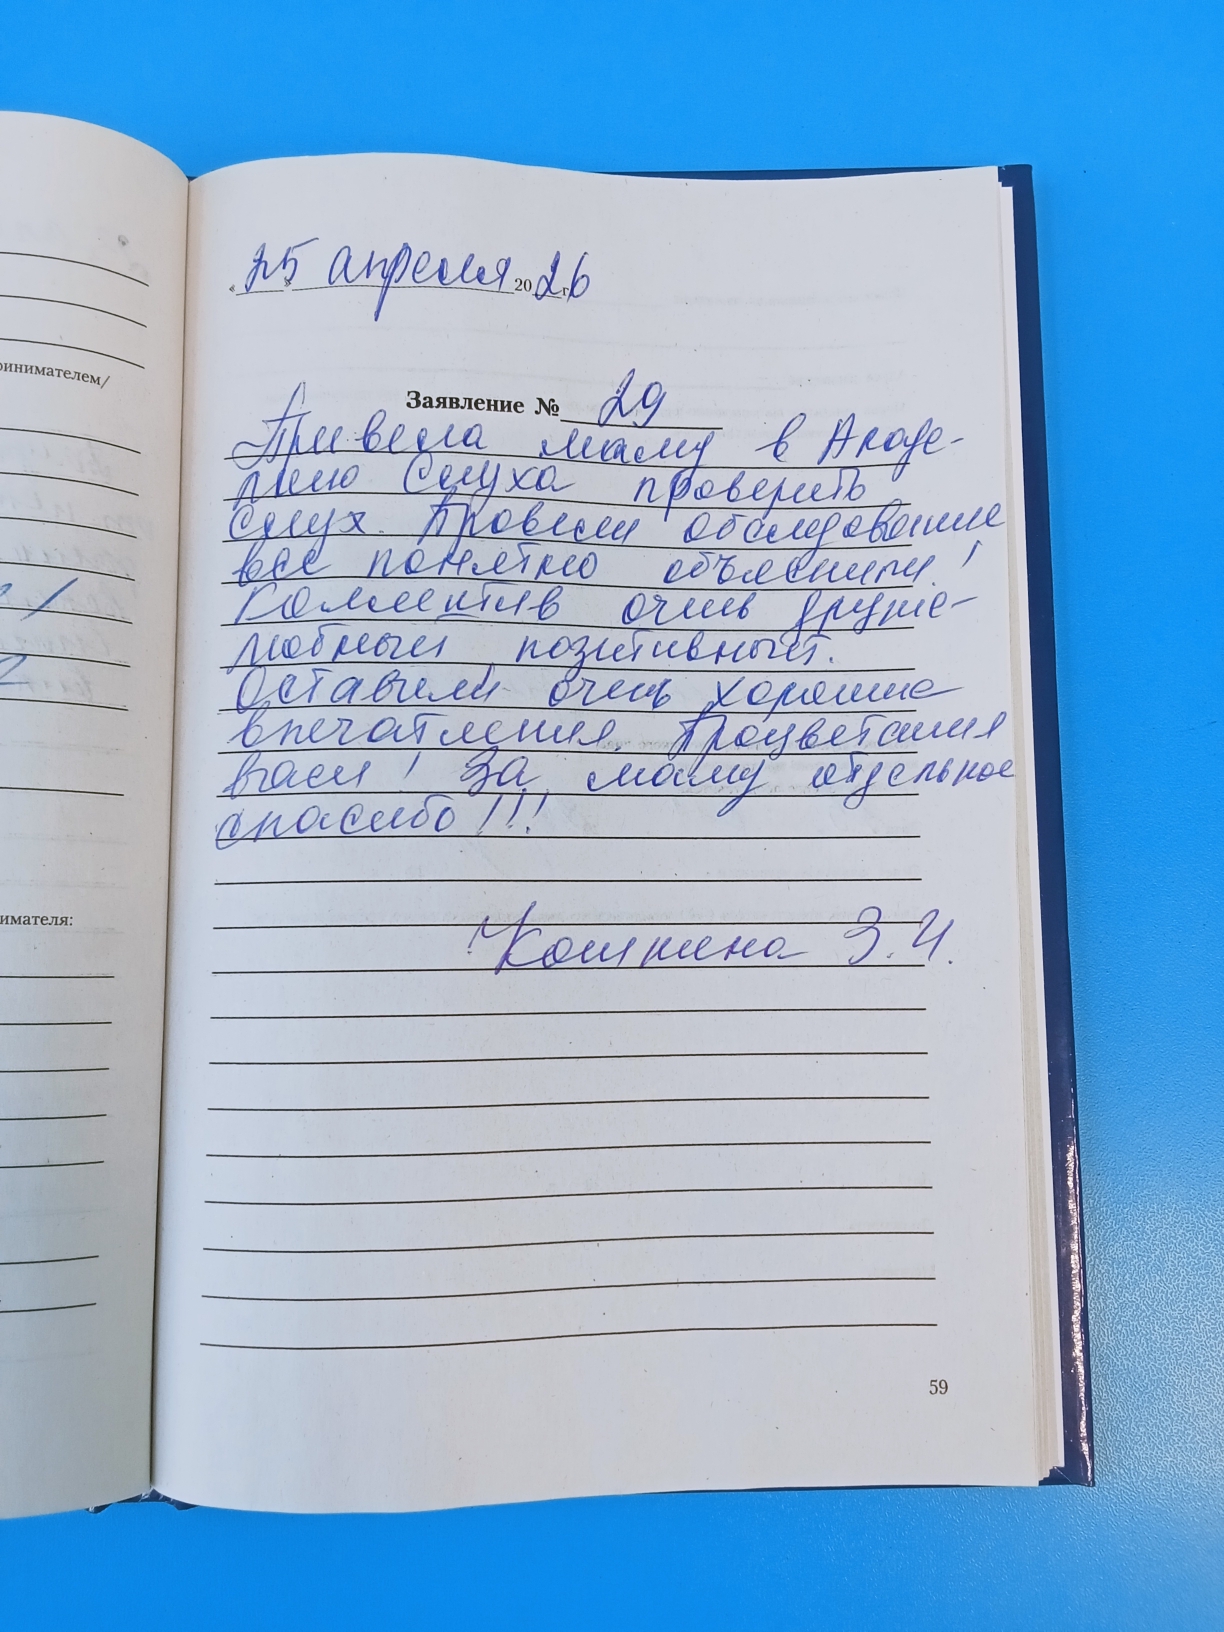 ринимателем/
имателя:
«25» апреля 2026 г.
Заявление № 29
Привела маму в Акаде-
мию Слуха проверить
слух. Провели обследование
все понятно объяснили!
Коллектив очень друже-
любный позитивный.
Оставили очень хорошие
впечатления. Процветания
вам! За маму отдельное
спасибо!!!
З.И.
59